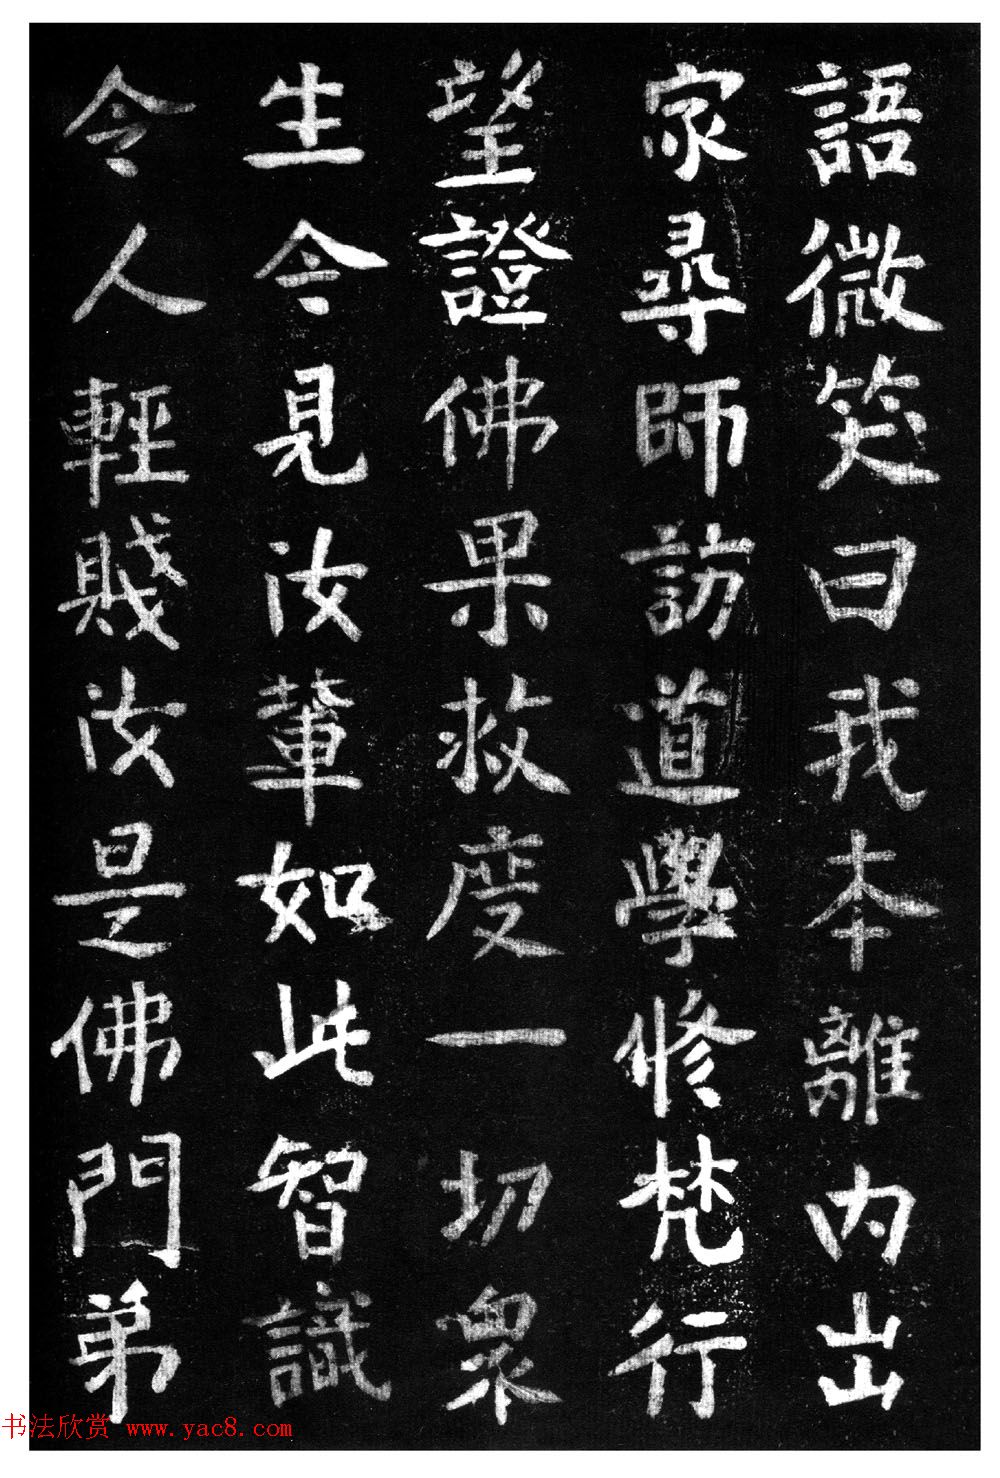 語微笑曰我本離內出
家尋師訪道學修梵行
望證佛果救度一切眾
生今見汝輩如此智識
令人輕賤汝是佛門弟
书法欣赏 www.yac8.com